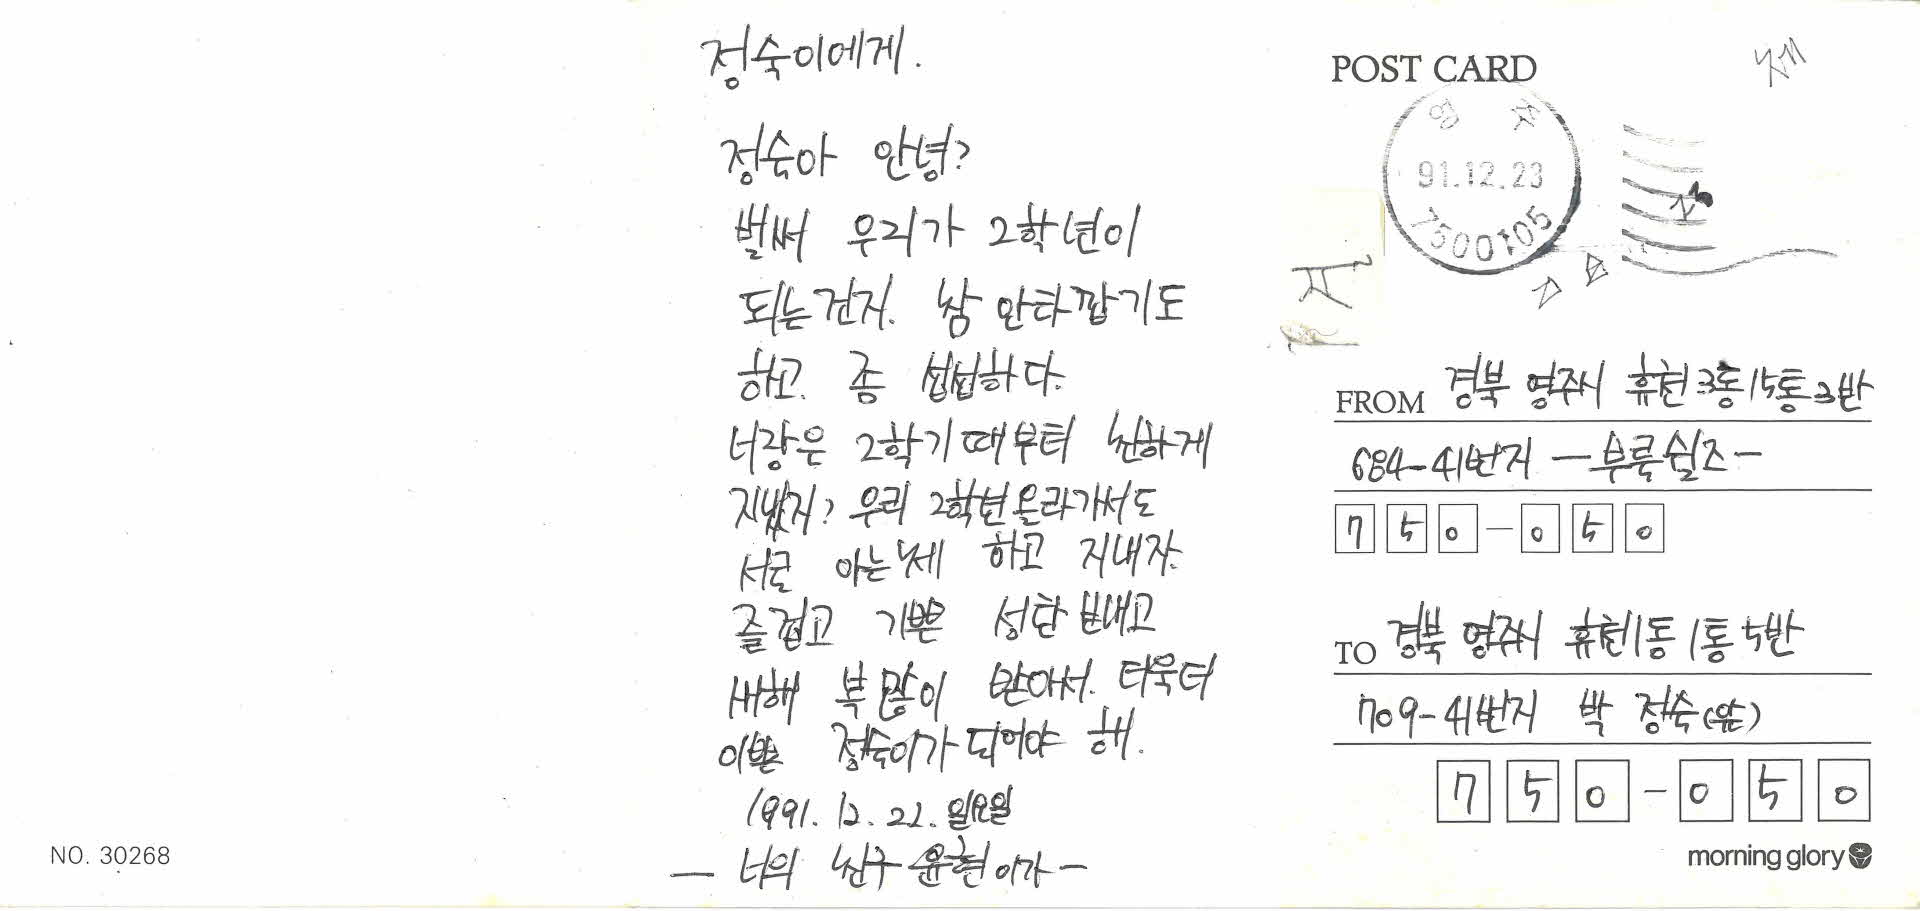 정숙이에게.
정숙아 안녕?
벌써 우리가 2학년이
되는건지. 참 안타깝기도
하고. 좀 섭섭하다.
너랑은 2학기때부터 친하게
지냈지? 우리 2학년 올라가서도
서로 아는체 하고 지내자.
즐겁고 기쁜 성탄 보내고
새해 복 많이 받아서. 더욱더
이쁜 정숙이가 되어야 해.
1991. 12. 22. 일요일
- 너의 친구 윤현이가 -
NO. 30268
POST CARD
영주
91.12.23
7500105
FROM 경북 영주시 휴천3동 15통 3반
684-41번지 -부룩쉴즈-
750-050
TO 경북 영주시 휴천1동 1통 5반
709-41번지 박 정숙(앞)
750-050
morning glory